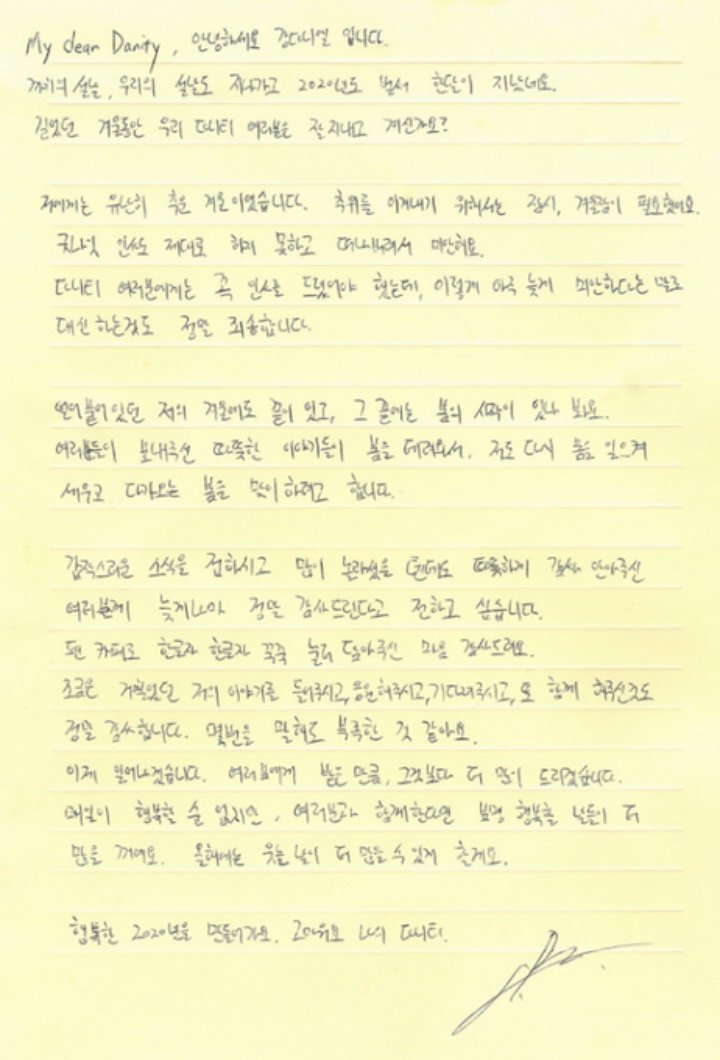 My dear Danity, 안녕하세요 강다니엘 입니다.
까치의 설날, 우리의 설날도 지나가고 2020년도 벌써 한달이 지났네요.
길었던 겨울동안 우리 다니티 여러분은 잘 지내고 계신가요?
저에게는 유난히 추운 겨울이었습니다. 추위를 이겨내기 위해서는 잠시, 겨울잠이 필요했어요.
굿나잇 인사도 제대로 하지 못하고 떠나버려서 미안해요.
다니티 여러분에게는 꼭 인사를 드렸어야 했는데, 이렇게 아주 늦게 미안하다는 말로
대신 하는것도 정말 죄송합니다.
얼어붙어있던 저의 겨울에도 끝이 있고, 그 끝에는 봄의 시작이 있나 봐요.
여러분들이 보내주신 따뜻한 이야기들이 봄을 데려와서, 저도 다시 몸을 일으켜
세우고 다가오는 봄을 맞이하려고 합니다.
갑작스러운 소식을 접하시고 많이 놀라셨을 텐데도 따뜻하게 감싸 안아주신
여러분께 늦게나마 정말 감사드린다고 전하고 싶습니다.
팬 카페로 한글자 한글자 꾹꾹 눌러 담아주신 마음 감사드려요.
조금은 거칠었던 저의 이야기를 들어주시고, 응원해주시고, 기다려주시고, 또 함께 해주신것도
정말 감사합니다. 몇번을 말해도 부족한 것 같아요.
이제 일어나겠습니다. 여러분에게 받은 만큼, 그것보다 더 많이 드리겠습니다.
매일이 행복할 순 없지만, 여러분과 함께한다면 분명 행복할 날들이 더
많을 꺼에요. 올해에는 웃을 날이 더 많을 수 있게 할게요.
행복한 2020년을 만들어가요. 고마워요 나의 다니티.